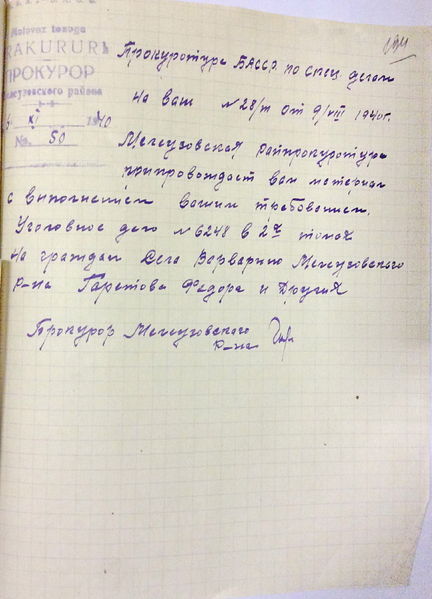 194
Meleuvz
PRAKURURЬ
ПРОКУРОР
Мелеузовского района
XI 1940
No. 50
Прокуротура БАССР по спец делам
На ваш №28/т от 9/VIII 1940г.
Мелеузовская райпрокуротура
припровождает вам материал
с выполнением вашим требованием.
Уголовное дело №6248 в 2х томах
на граждан Села Варварино Мелеузовского
р-на Гаретова Федора и Других
Прокурор Мелеузовского
р-на